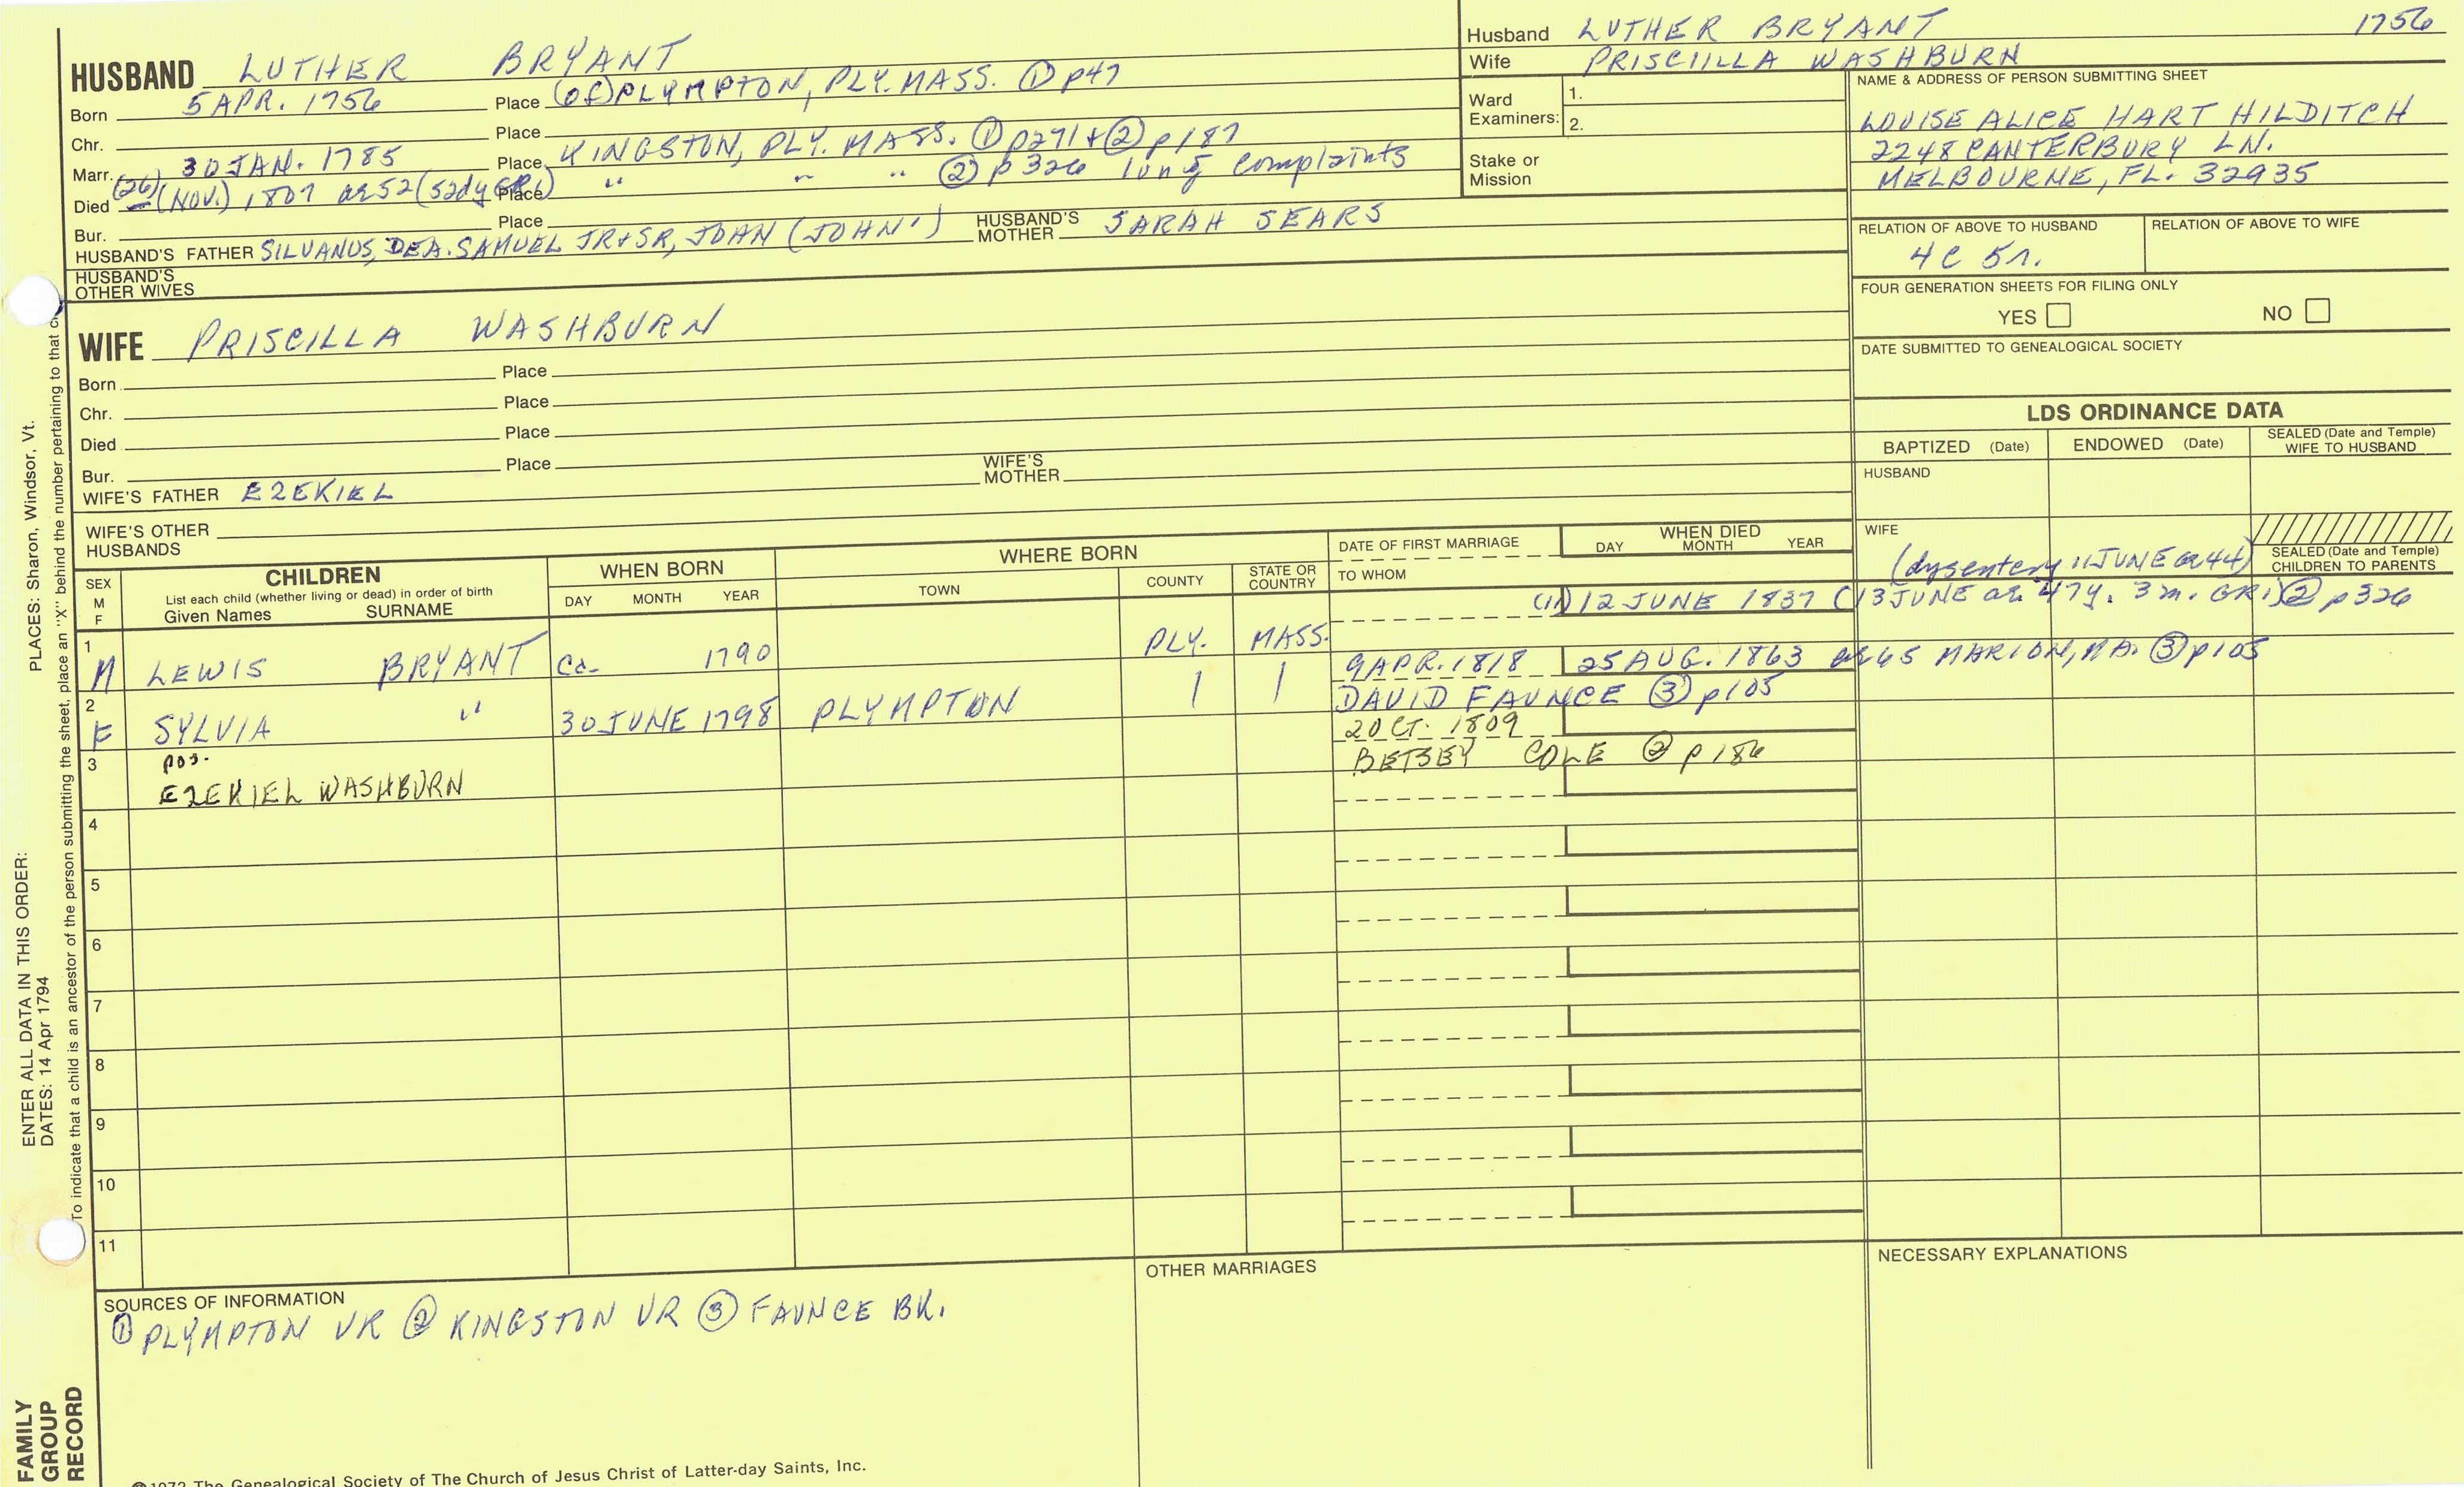 HUSBAND LUTHER BRYANT
Born 5 APR. 1756 Place (of) PLYMPTON, PLY. MASS. ① p47
Chr. Place
Marr. 30 JAN. 1785 Place KINGSTON, PLY. MASS. ① p271 + ② p187
Died (26) (NOV.) 1807 ae 52 (52dy GR1) Place " " " ② p326 lung complaints
Bur. Place
HUSBAND'S FATHER SILVANUS, DEA. SAMUEL JR+SR, JOAN (JOHN') HUSBAND'S MOTHER SARAH SEARS
HUSBAND'S OTHER WIVES
WIFE PRISCILLA WASHBURN
Born Place
Chr. Place
Died Place
Bur. Place
WIFE'S FATHER EZEKIEL WIFE'S MOTHER
WIFE'S OTHER HUSBANDS
Husband LUTHER BRYANT 1756
Wife PRISCIILLA WASHBURN
Ward Examiners: 1.
2.
Stake or Mission
NAME & ADDRESS OF PERSON SUBMITTING SHEET
LOUISE ALICE HART HILDITCH
2248 CANTERBURY LN.
MELBOURNE, FL. 32935
RELATION OF ABOVE TO HUSBAND RELATION OF ABOVE TO WIFE
4C 5r.
FOUR GENERATION SHEETS FOR FILING ONLY
YES NO
DATE SUBMITTED TO GENEALOGICAL SOCIETY
LDS ORDINANCE DATA
BAPTIZED (Date) ENDOWED (Date) SEALED (Date and Temple) WIFE TO HUSBAND
HUSBAND
WIFE
SEALED (Date and Temple) CHILDREN TO PARENTS
SEX M F
CHILDREN
List each child (whether living or dead) in order of birth
Given Names SURNAME
WHEN BORN
DAY MONTH YEAR
WHERE BORN
TOWN COUNTY STATE OR COUNTRY
DATE OF FIRST MARRIAGE
TO WHOM
WHEN DIED
DAY MONTH YEAR
(dysentery 11 JUNE ae 44)
1 M LEWIS BRYANT Ca. 1790 PLY. MASS. (in) 12 JUNE 1837 (13 JUNE ae. 47y. 3m. GR1) ② p326
2 F SYLVIA " 30 JUNE 1798 PLYMPTON | | 9 APR. 1818 25 AUG. 1863 ae 65 MARION, MA. ③ p105
DAVID FAUNCE ③ p105
3 pos. EZEKIEL WASHBURN 2 OCT. 1809
BETSEY COLE ② p186
4
5
6
7
8
9
10
11
SOURCES OF INFORMATION
① PLYMPTON VR ② KINGSTON VR ③ FAUNCE BK.
OTHER MARRIAGES
NECESSARY EXPLANATIONS
©1972 The Genealogical Society of The Church of Jesus Christ of Latter-day Saints, Inc.
FAMILY GROUP RECORD
ENTER ALL DATA IN THIS ORDER:
DATES: 14 Apr 1794
PLACES: Sharon, Windsor, Vt.
To indicate that a child is an ancestor of the person submitting the sheet, place an "X" behind the number pertaining to that